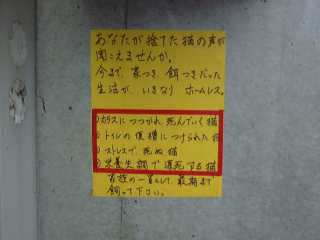 あなたが捨てた猫の声が
聞こえませんか。
今まで、家つき 餌つきだった
生活が いきなり ホームレス。
カラスにつつかれ 死んでいく猫
トイレの便槽につけられた猫
ストレスで 死ぬ猫
栄養失調で 凍死する猫
家族の一員として、最期まで
飼って下さい。